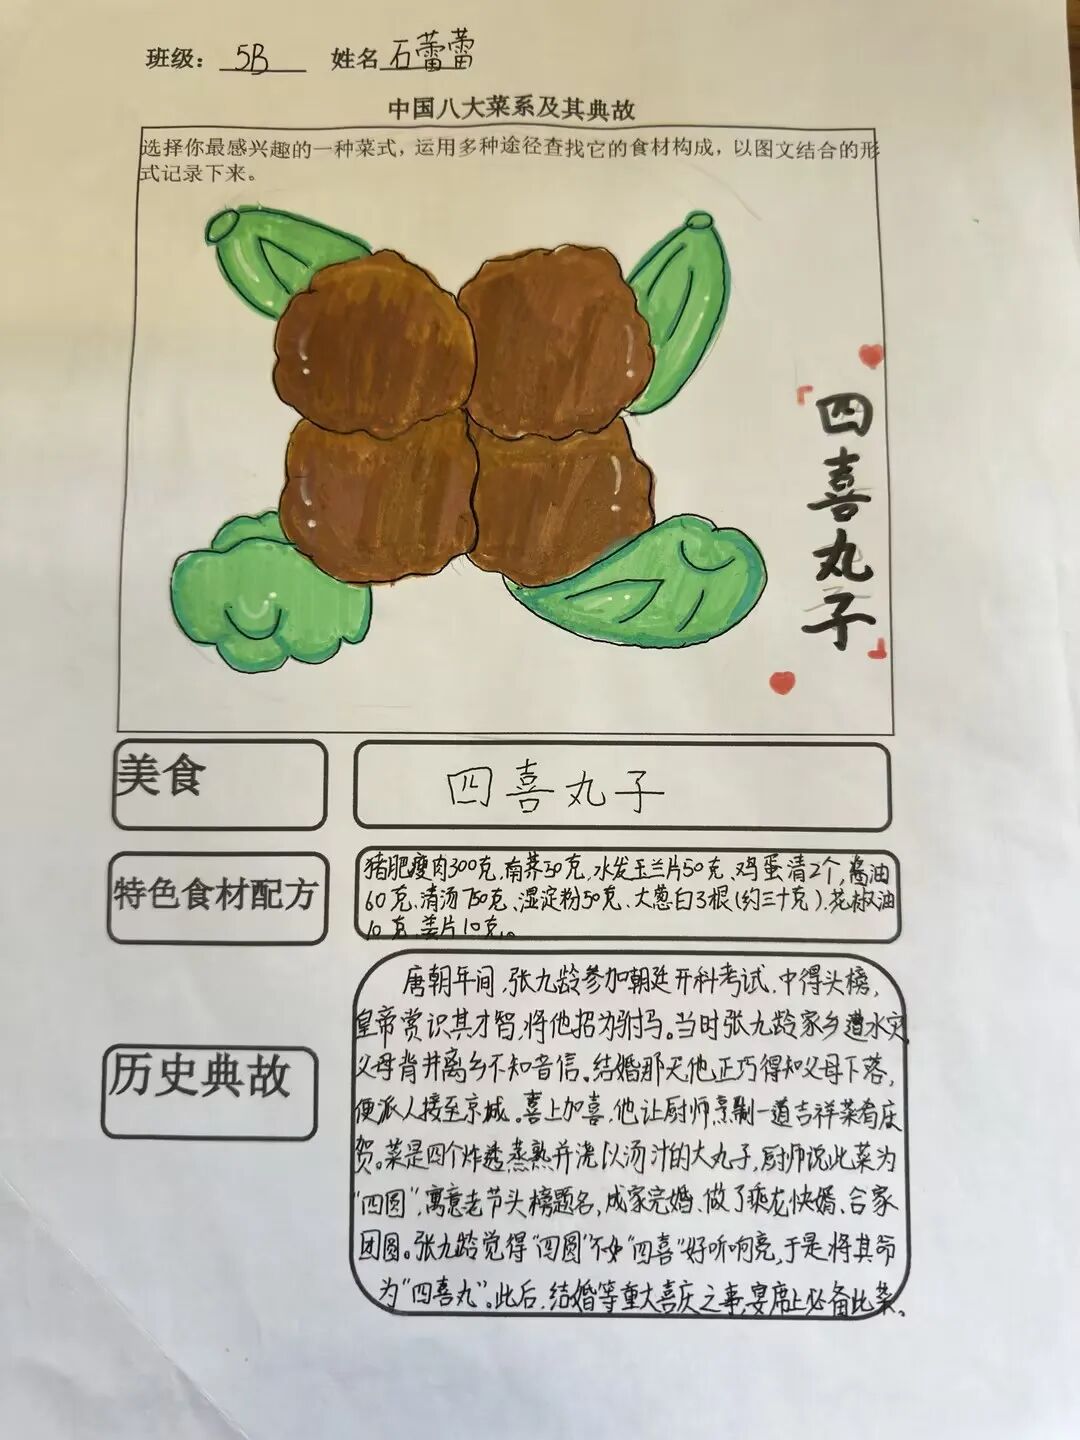 班级： 5B 姓名 石蕾蕾
中国八大菜系及其典故
选择你最感兴趣的一种菜式，运用多种途径查找它的食材构成，以图文结合的形
式记录下来。
「四喜丸子」
美食
四喜丸子
特色食材配方
猪肥瘦肉300克、南荠50克、水发玉兰片50克、鸡蛋清2个、酱油
60克、清汤750克、湿淀粉50克、大葱白3根(约三十克)、花椒油
10克、姜片10克。
历史典故
唐朝年间，张九龄参加朝廷开科考试，中得头榜，
皇帝赏识其才智，将他招为驸马。当时张九龄家乡遭水灾，
父母背井离乡不知音信。结婚那天他正巧得知父母下落，
便派人接至京城。喜上加喜，他让厨师烹制一道吉祥菜肴庆
贺。菜是四个炸透蒸熟并浇以汤汁的大丸子，厨师说此菜为
“四圆”，寓意老爷头榜题名，成家完婚、做了乘龙快婿、合家
团圆。张九龄觉得“四圆”不如“四喜”好听响亮，于是将其命
为“四喜丸”。此后，结婚等重大喜庆之事，宴席上必备此菜。